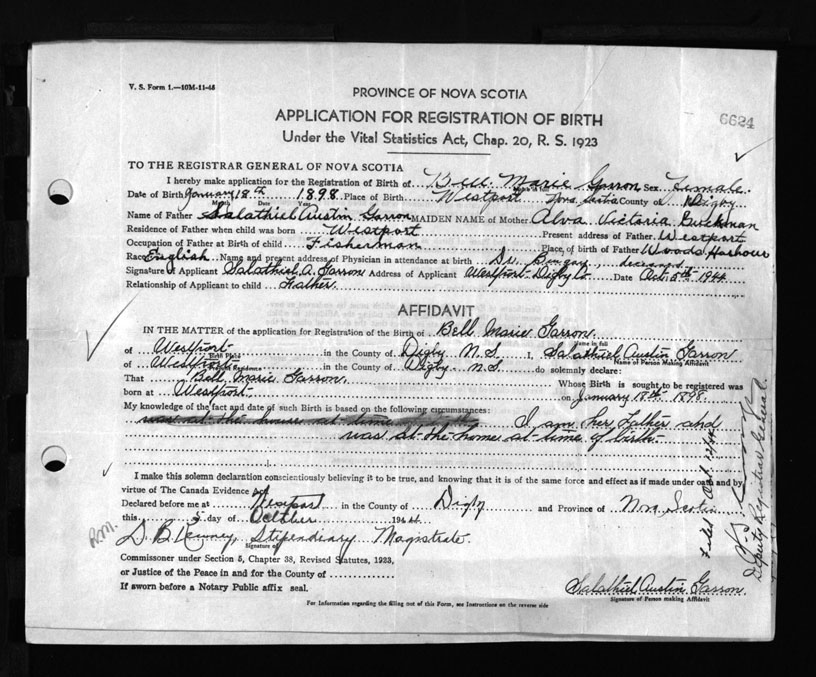 V. S. Form 1.—10M-11-43
PROVINCE OF NOVA SCOTIA
6624
APPLICATION FOR REGISTRATION OF BIRTH
Under the Vital Statistics Act, Chap. 20, R. S. 1923
TO THE REGISTRAR GENERAL OF NOVA SCOTIA
I hereby make application for the Registration of Birth of Bell Marie Garron Sex Female
Date of Birth January 18th 1898 Place of Birth Westport Nova Scotia County of Digby
Month Day Year
Name of Father Salathiel Austin Garron MAIDEN NAME of Mother Alva Victoria
Residence of Father when child was born Westport Present address of Father Westport
Occupation of Father at Birth of child Fisherman Place of birth of Father Woods Harbour
Race English Name and present address of Physician in attendance at birth Dr. Bingay, deceased
Signature of Applicant Salathiel A. Garron Address of Applicant Westport Digby Co Date Oct 5th 1944
Relationship of Applicant to child Father
AFFIDAVIT
IN THE MATTER of the application for Registration of the Birth of Bell Marie Garron
Name in full
of Westport in the County of Digby N.S. I, Salathiel Austin Garron
Birth Place Name of Person Making Affidavit
of Westport in the County of Digby N.S. do solemnly declare:
Residence
That Bell Marie Garron Whose Birth is sought to be registered was
born at Westport on January 18th 1898.
My knowledge of the fact and date of such Birth is based on the following circumstances:
was at the house at time of birth I am her Father and
was at the home at time of birth
I make this solemn declaration conscientiously believing it to be true, and knowing that it is of the same force and effect as if made under oath and by
virtue of The Canada Evidence Act
Declared before me at Westport in the County of Digby and Province of Nova Scotia
this 5 day of October 1944
R.M.
Stipendiary Magistrate
Signature of
Commissioner under Section 5, Chapter 38, Revised Statutes, 1923,
or Justice of the Peace in and for the County of
If sworn before a Notary Public affix seal.
Salathiel Austin Garron
Signature of Person making Affidavit
For Information regarding the filling out of this Form, see Instructions on the reverse side
Filed Oct
Deputy Registrar General